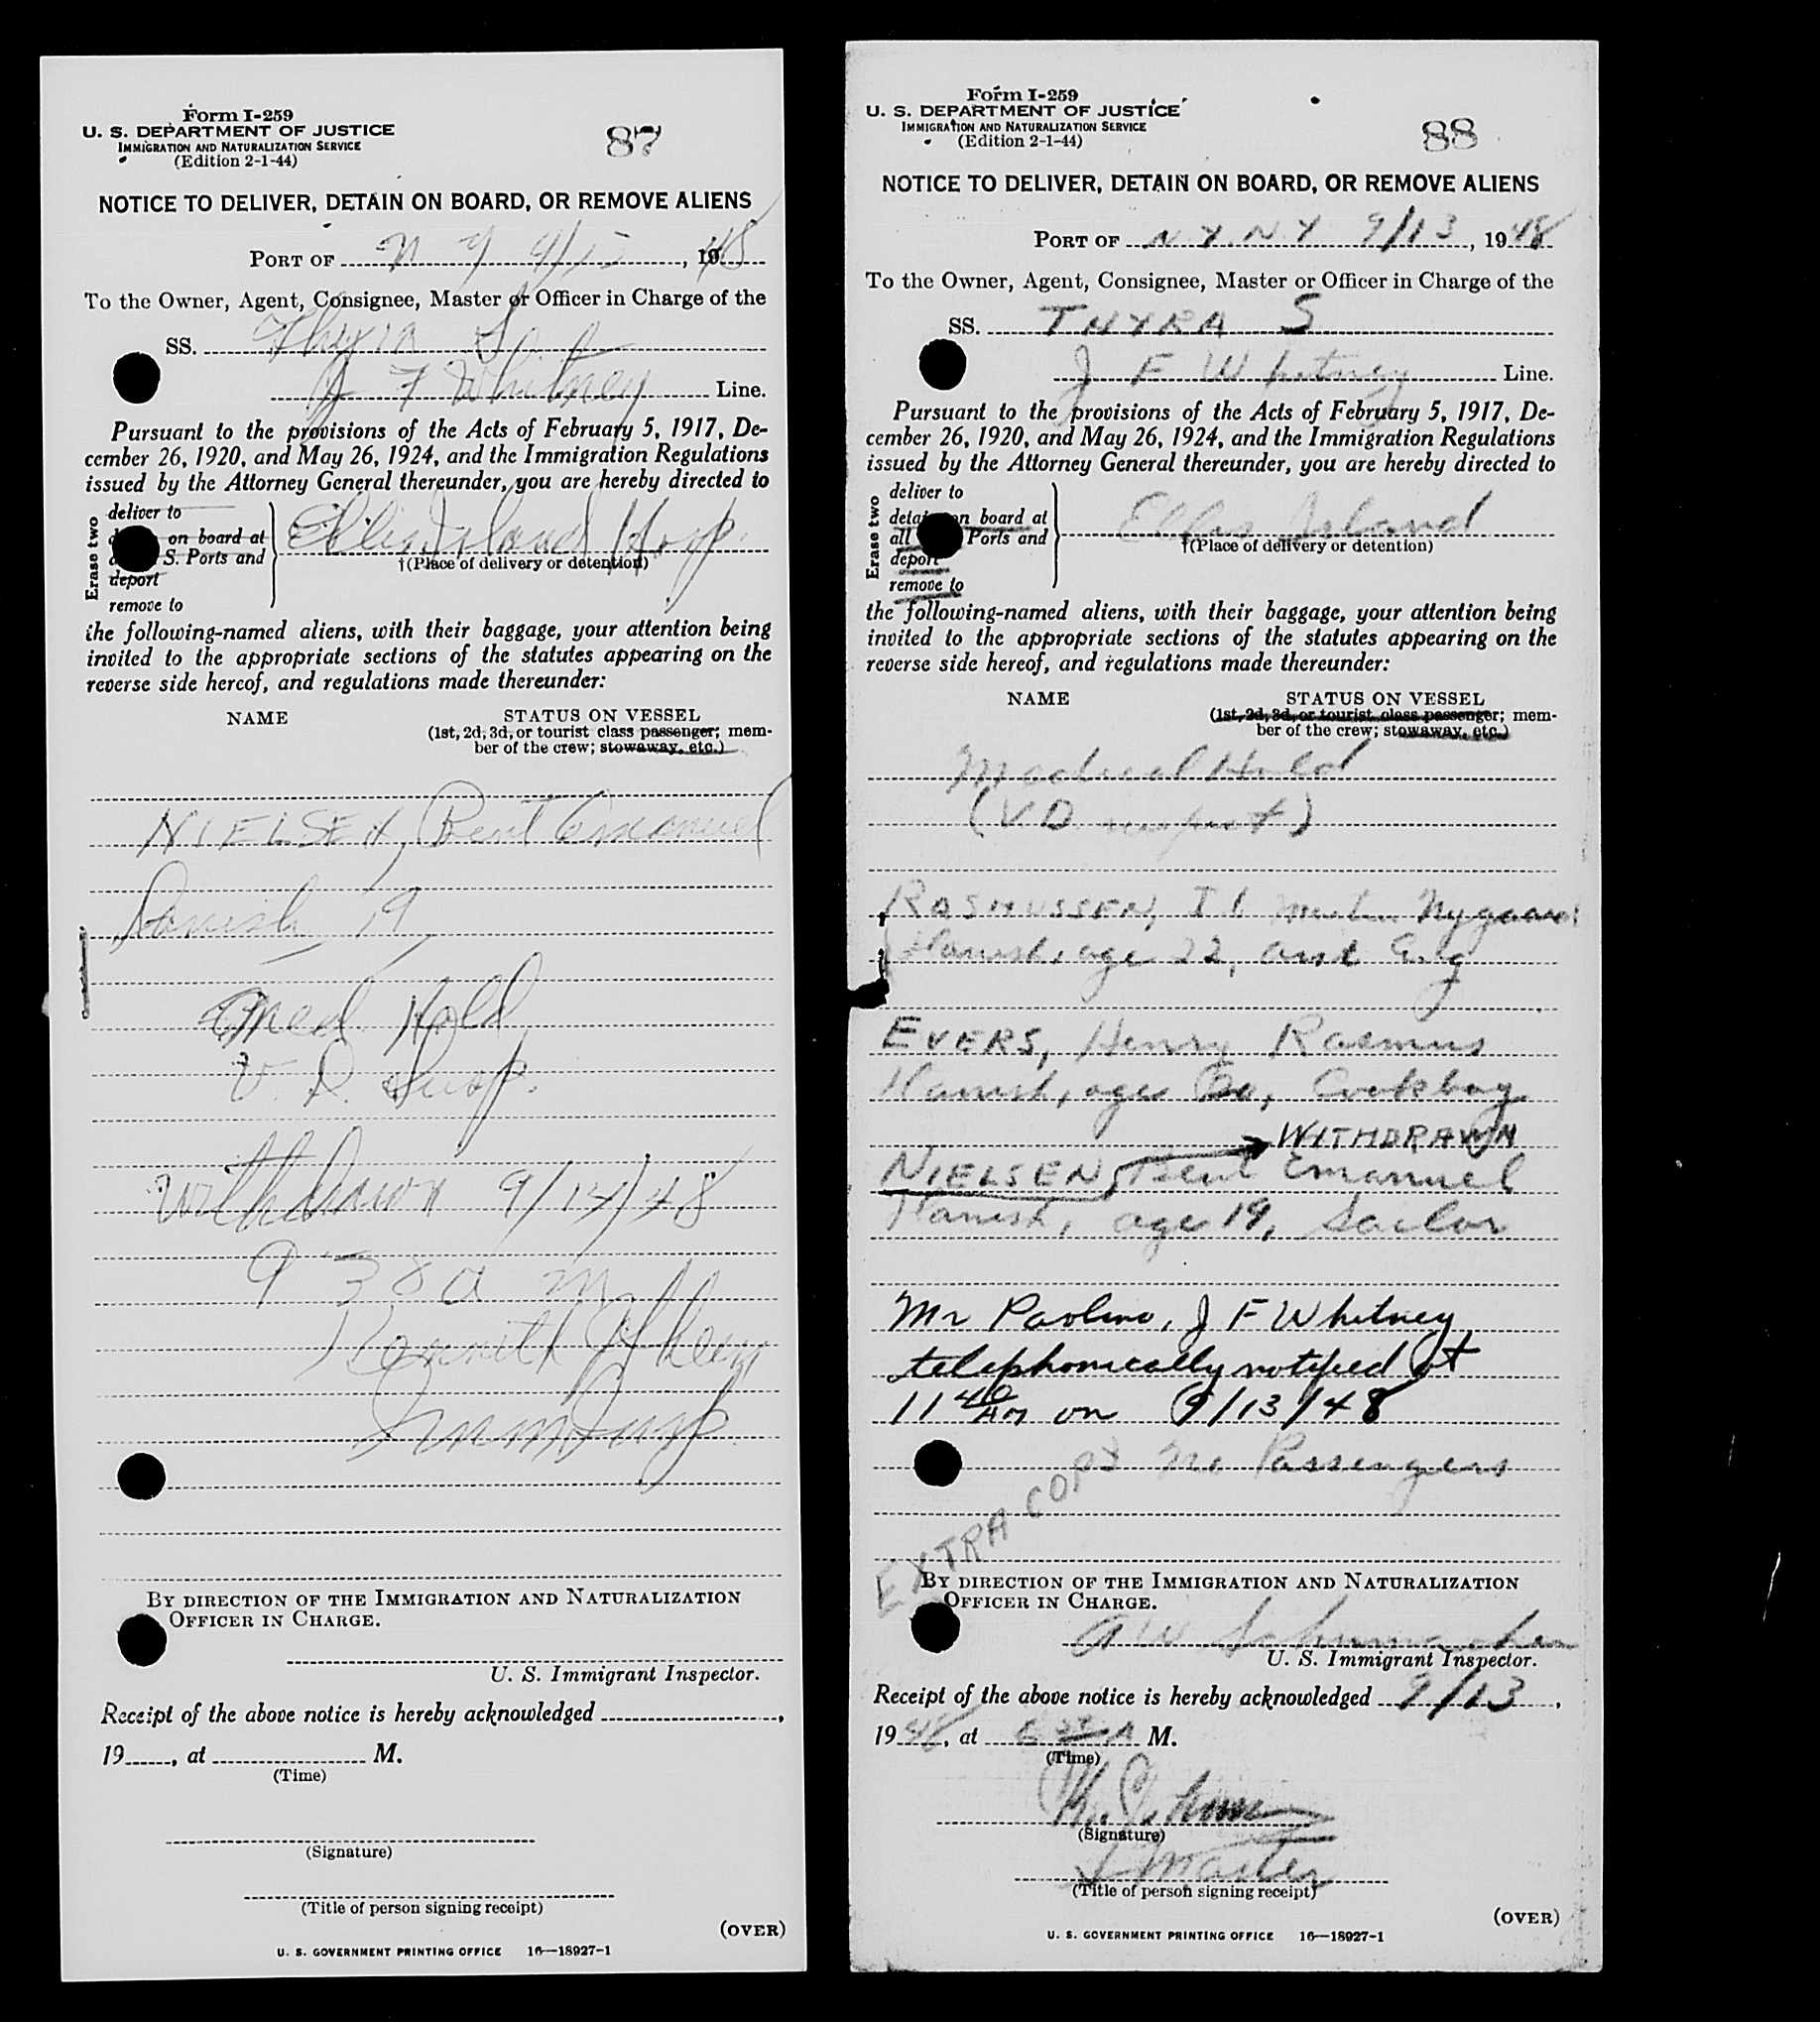 Form I-259
U. S. DEPARTMENT OF JUSTICE
IMMIGRATION AND NATURALIZATION SERVICE
(Edition 2-1-44)
87
NOTICE TO DELIVER, DETAIN ON BOARD, OR REMOVE ALIENS
PORT OF N Y 9/13, 1948
To the Owner, Agent, Consignee, Master or Officer in Charge of the
SS. Thyra S.
J F Whitney Line.
Pursuant to the provisions of the Acts of February 5, 1917, De-
cember 26, 1920, and May 26, 1924, and the Immigration Regulations
issued by the Attorney General thereunder, you are hereby directed to
Erase two
deliver to
on board at
S. Ports and
deport
remove to
Ellis Island Hosp.
†(Place of delivery or detention)
the following-named aliens, with their baggage, your attention being
invited to the appropriate sections of the statutes appearing on the
reverse side hereof, and regulations made thereunder:
NAME
STATUS ON VESSEL
(1st, 2d, 3d, or tourist class passenger; mem-
ber of the crew; stowaway, etc.)
NIELSEN, Bent Emanuel
Danish 19
Med Hold
V. D. Susp.
Withdrawn 9/14/48
9 38 a m
Imm Insp.
BY DIRECTION OF THE IMMIGRATION AND NATURALIZATION
OFFICER IN CHARGE.
U. S. Immigrant Inspector.
Receipt of the above notice is hereby acknowledged ,
19 , at M.
(Time)
(Signature)
(Title of person signing receipt)
(OVER)
U. S. GOVERNMENT PRINTING OFFICE 16—18927-1
Form I-259
U. S. DEPARTMENT OF JUSTICE
IMMIGRATION AND NATURALIZATION SERVICE
(Edition 2-1-44)
88
NOTICE TO DELIVER, DETAIN ON BOARD, OR REMOVE ALIENS
PORT OF N.Y. N.Y 9/13, 1948
To the Owner, Agent, Consignee, Master or Officer in Charge of the
SS. THYRA S
J F Whitney Line.
Pursuant to the provisions of the Acts of February 5, 1917, De-
cember 26, 1920, and May 26, 1924, and the Immigration Regulations
issued by the Attorney General thereunder, you are hereby directed to
Erase two
deliver to
on board at
all Ports and
deport
remove to
Ellis Island
†(Place of delivery or detention)
the following-named aliens, with their baggage, your attention being
invited to the appropriate sections of the statutes appearing on the
reverse side hereof, and regulations made thereunder:
NAME
STATUS ON VESSEL
(1st, 2d, 3d, or tourist class passenger; mem-
ber of the crew; stowaway, etc.)
Medical Hold
(VD suspect)
RASMUSSEN, Nygaard
Danish, age 22, asst Eng
EVERS, Henry Rasmus
Danish, age 20, Cookboy
WITHDRAWN
NIELSEN, Bent Emanuel
Danish, age 19, Sailor
Mr Paolino, J F Whitney
telephonically notified at
11 40 AM on 9/13/48
No Passengers
EXTRA COPY
BY DIRECTION OF THE IMMIGRATION AND NATURALIZATION
OFFICER IN CHARGE.
A W Schumacher
U. S. Immigrant Inspector.
Receipt of the above notice is hereby acknowledged 9/13,
1948, at M.
(Time)
(Signature)
Master
(Title of person signing receipt)
(OVER)
U. S. GOVERNMENT PRINTING OFFICE 16—18927-1